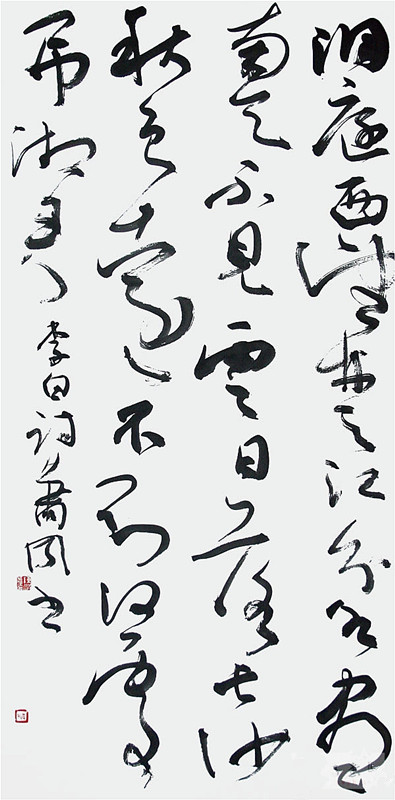 洞庭西望楚江分水尽
南天不見雲日落长沙
秋色遠不知何處
吊湘君 李白诗 书